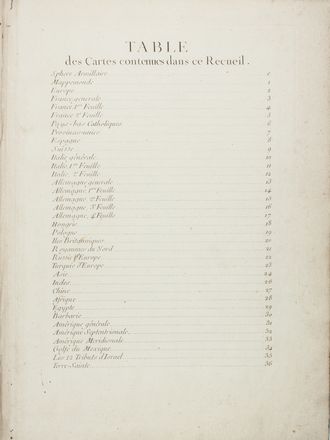 TABLE
des Cartes contenues dans ce Recueil.
Sphere Armillaire
Mappemonde 1
Europe 2
France générale 3
France 1ere Feuille 4
France 2e Feuille 5
Pays-bas Catholiques 6
Provinces-unies 7
Espagne 8
Suisse 9
Italie générale 10
Italie, 1ere Feuille 11
Italie, 2e Feuille 12
Allemagne générale 13
Allemagne, 1ere Feuille 14
Allemagne, 2e Feuille 15
Allemagne, 3e Feuille 16
Allemagne, 4e Feuille 17
Hongrie 18
Pologne 19
Iles Britanniques 20
Royaumes du Nord 21
Russie d'Europe 22
Turquie d'Europe 23
Asie 24
Indes 26
Chine 27
Afrique 28
Egypte 29
Barbarie 30
Amérique générale 31
Amérique Septentrionale 32
Amérique Meridionale 33
Golfe du Mexique 34
Les 12 Tributs d'Israel 35
Terre-Sainte 36